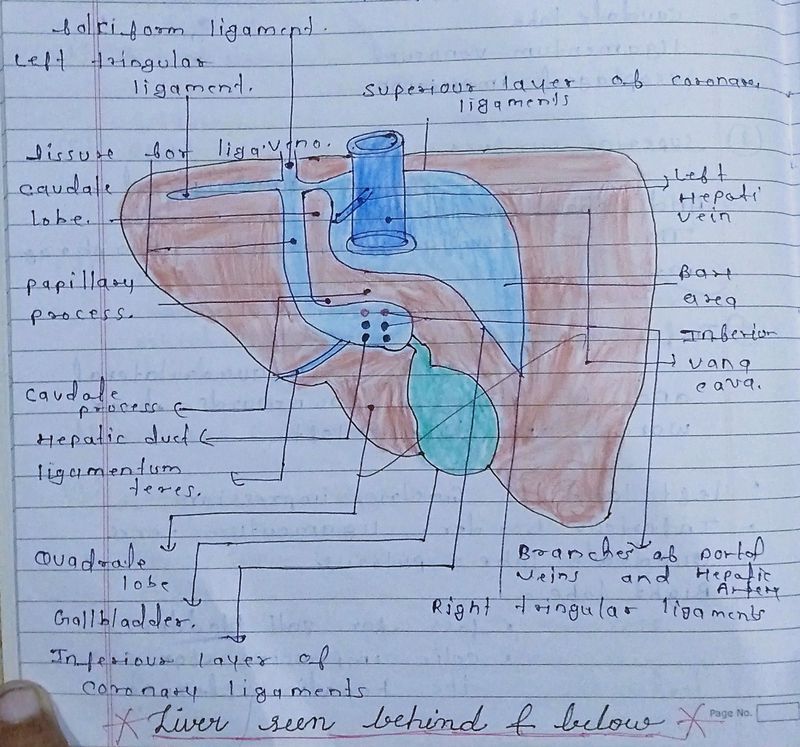 falciform ligament.
Left tringular
ligament.
Superiour layer of coronary
ligaments
fissure for liga.veno.
caudate
lobe.
Left
Hepati
vein
papillary
process.
Bare
area
Inferior
vana
cava.
caudate
process
Hepatic duct
ligamentum
teres.
Quadrate
lobe
Gallbladder.
Branches of portal
veins and Hepatic
Artery
Right tringular ligaments
Inferiour layer of
coronary ligaments
Liver seen behind & below
Page No.